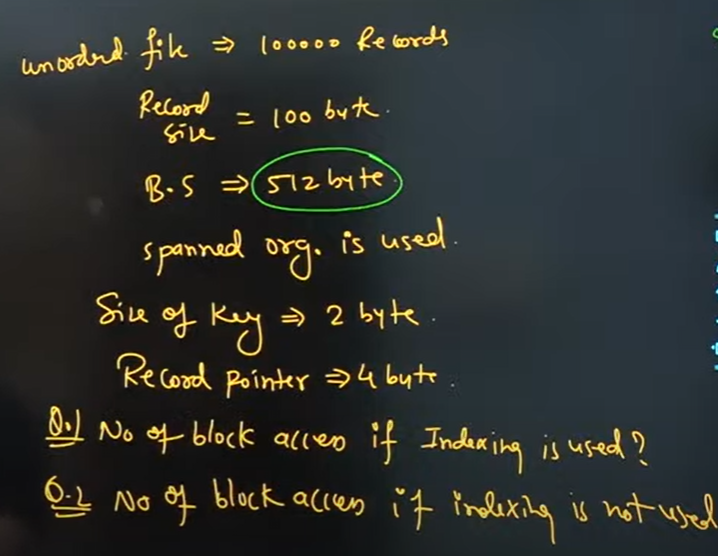 unordrd file ⇒ 100000 Records
Record size = 100 byte.
B.S ⇒ 512 byte.
spanned org. is used.
Size of Key ⇒ 2 byte.
Record pointer ⇒ 4 byte.
Q.1 No of block access if Indexing is used?
Q.2 No of block access if indexing is not used